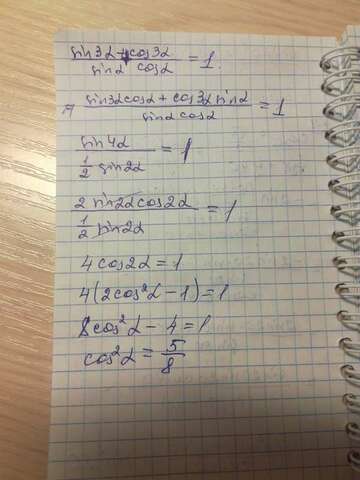 sin3α + cos3α / sinα cosα = 1.
sin3α cosα + cos3α sinα / sinα cosα = 1
sin4α / 1/2 sin2α = 1
2 sin2α cos2α / 1/2 sin2α = 1
4 cos2α = 1
4(2cos²α - 1) = 1
8cos²α - 4 = 1
cos²α = 5/8